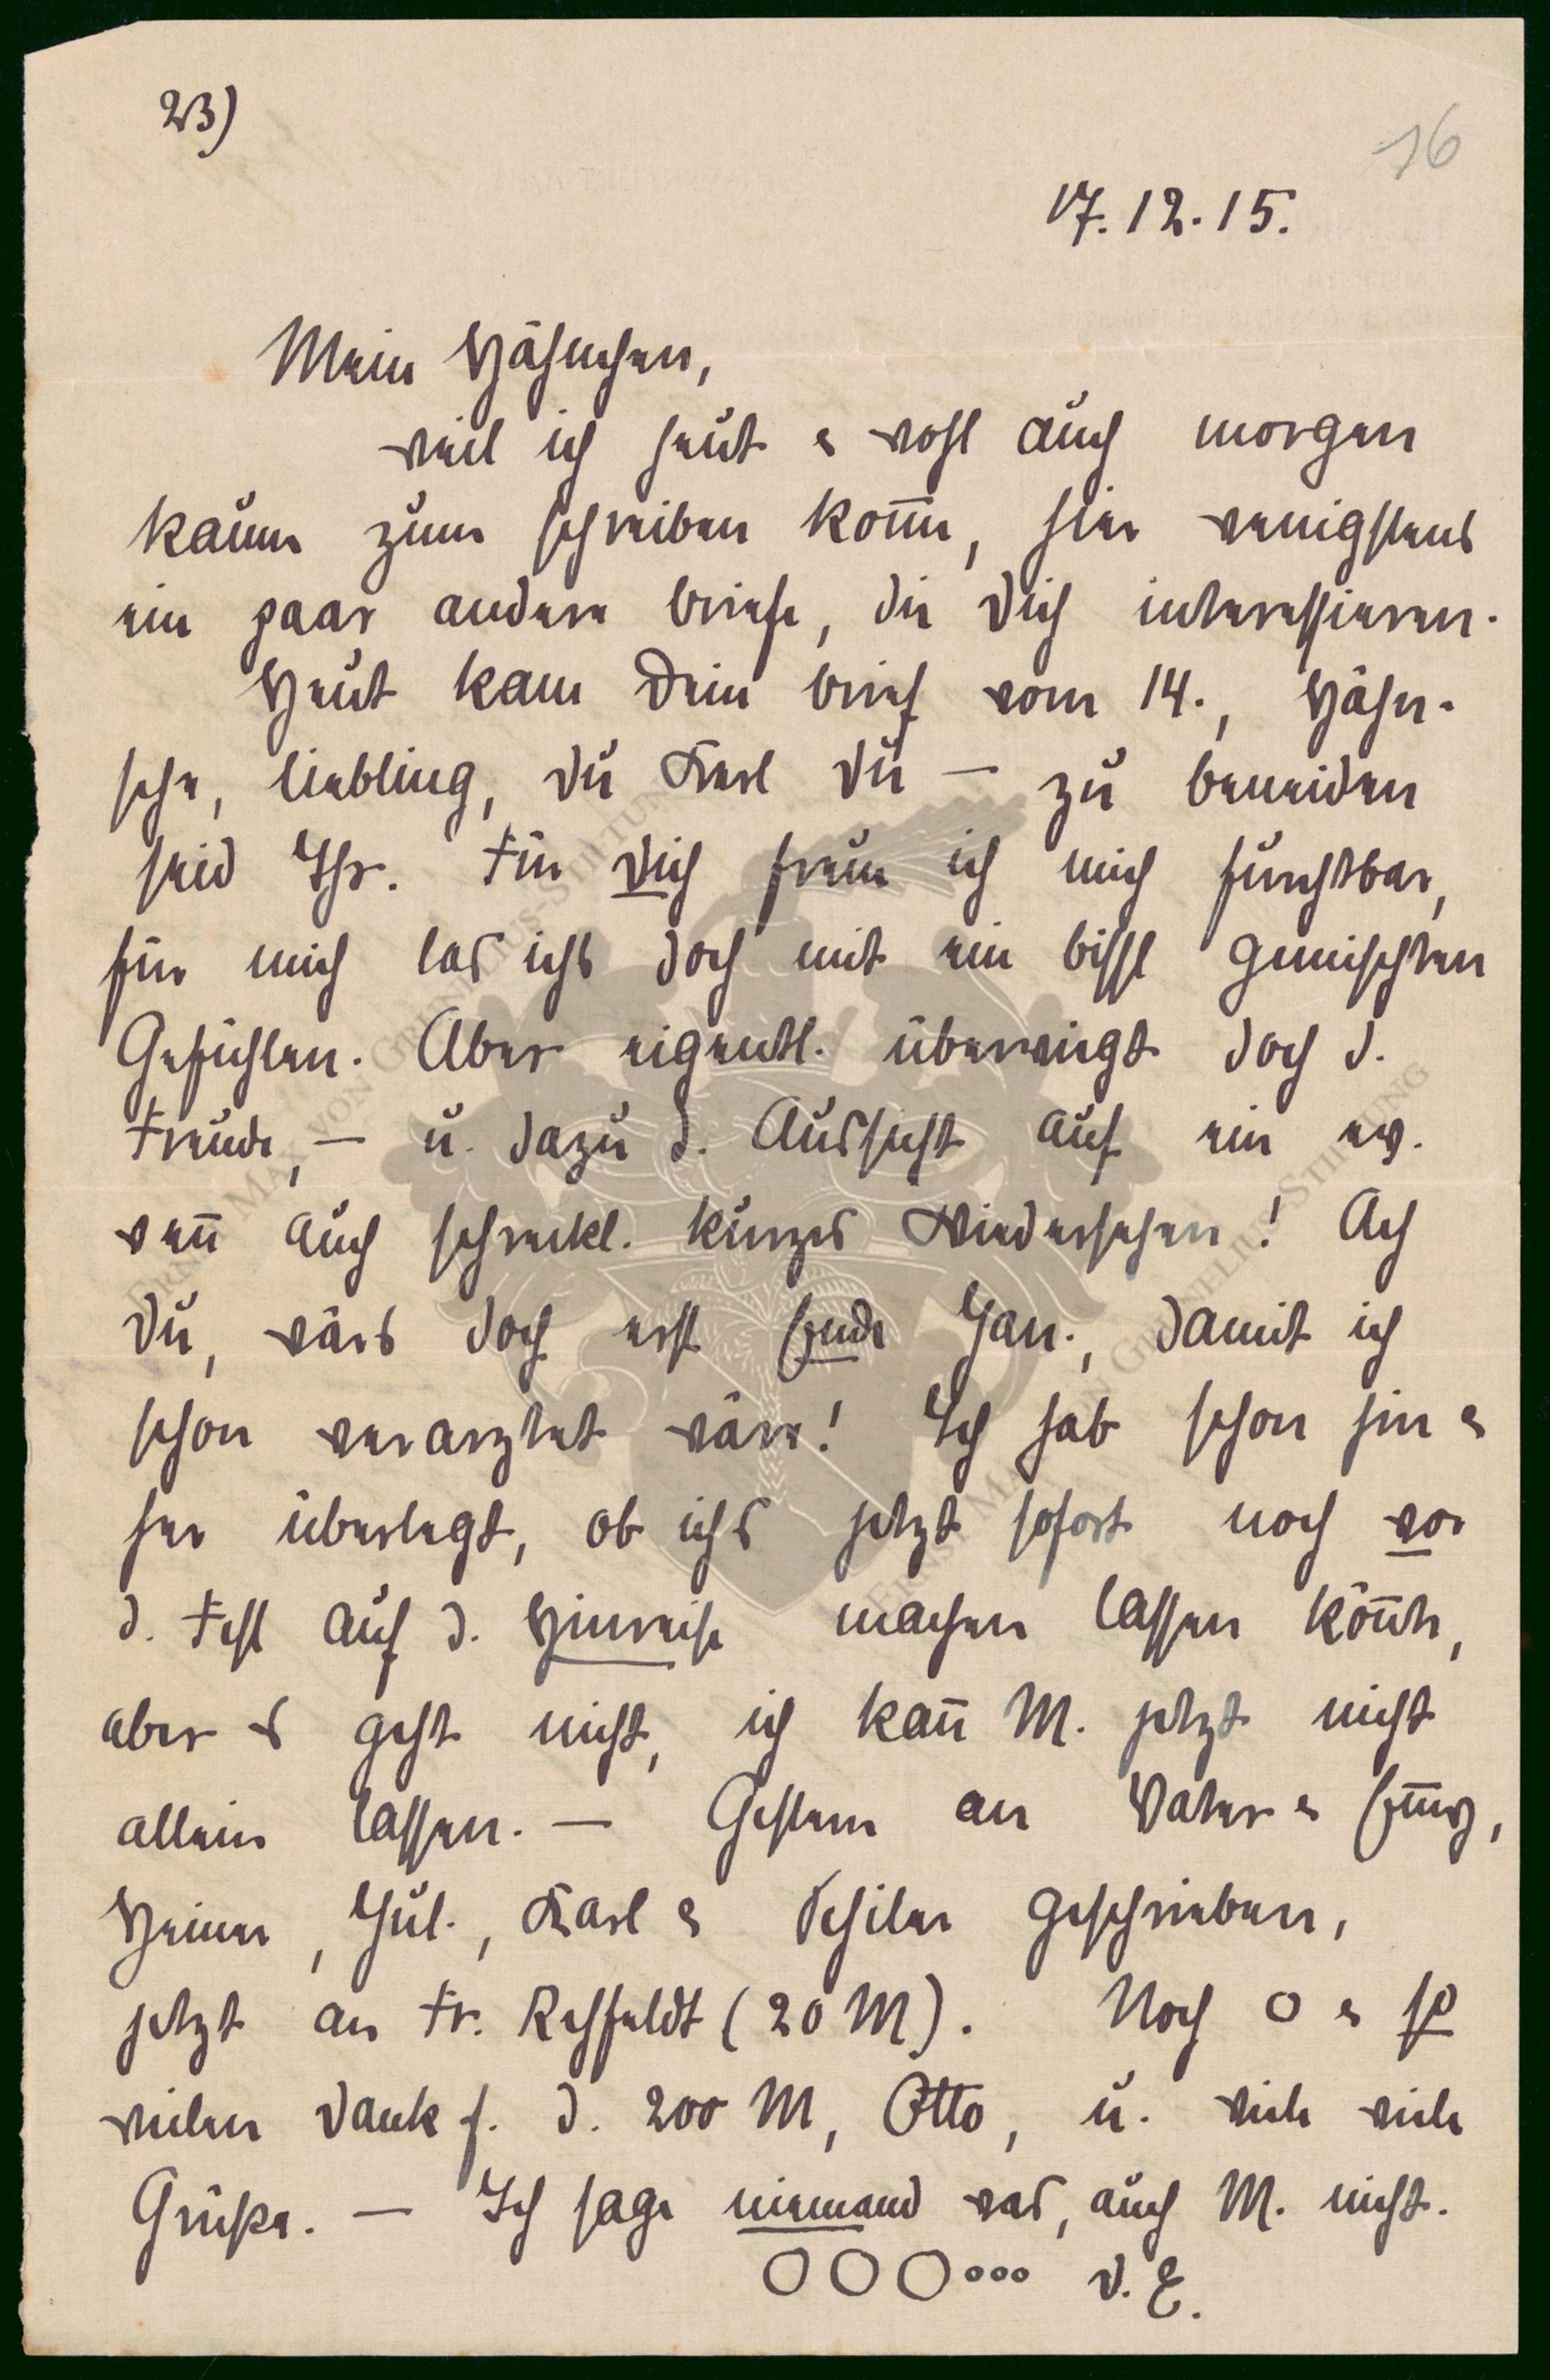 23)
16
17.12.15.
Mein Hähnchen,
weil ich heut & wohl auch morgen
kaum zum schreiben kom̅e, hier wenigstens
ein paar andere briefe, die Dich interessieren.
Heut kam Dein brief vom 14., Hähn-
che, liebling, Du Kerl Du — zu beneiden
seid Ihr. Für Dich freue ich mich furchtbar,
für mich las ichs doch mit ein bissl gemischten
Gefühlen. Aber eigentl. überwiegt doch d.
Freude, — u. dazu d. Aussicht auf ein ew.
wen̅ auch schreckl. kurzes Wiedersehen! Ach
Du, wärs doch erst Ende Jan., damit ich
schon verarztet wäre! Ich hab schon hin &
her überlegt, ob ichs jetzt sofort noch vor
d. Fest auf d. Hinreise machen lassen kön̅te,
aber es geht nicht, ich kan̅ M. jetzt nicht
allein lassen. — Gestern an Vater & Em̅y,
Heiner, Jul., Karl & geschrieben,
jetzt an Fr. Rehfeldt (20 M). Noch O &
vielen Dank f. d. 200 M, Otto, u. viele viele
Grüße. — Ich sage niemand was, auch M. nicht.
OOO... D. E.
ERNST MAX VON GRUNELIUS-STIFTUNG
ERNST MAX VON GRUNELIUS-STIFTUNG